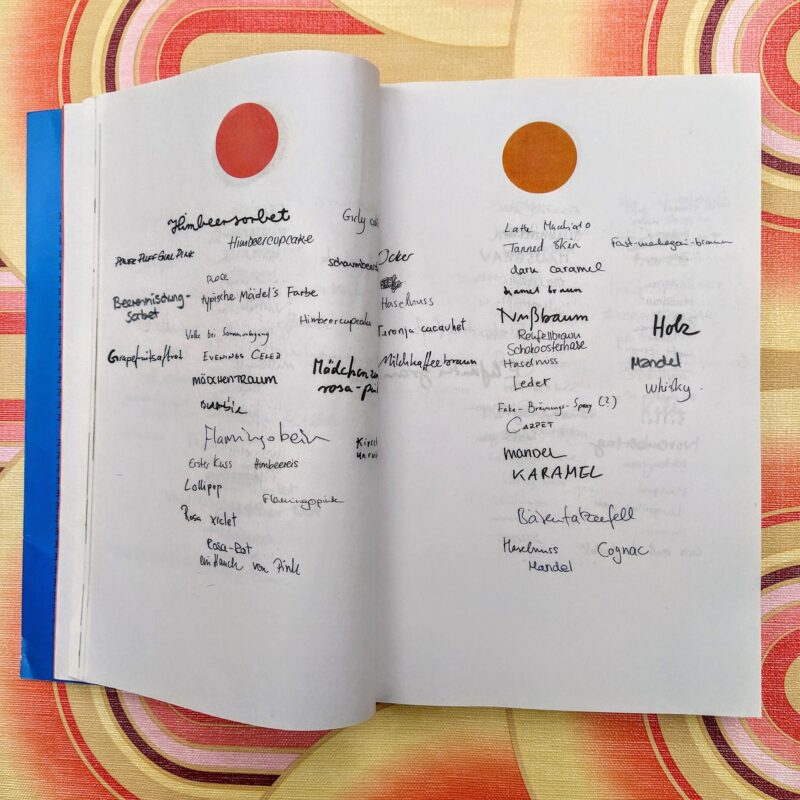 Himbeersorbet
Girly
Himbeercupcake
POWER PUFF GIRL PINK
schaumbeere
ROSE
Beerenmischung-
sorbet
typische Mädel's Farbe
Himbeercupcake
Wolke bei Sonnenuntergang
Grapefruitsaftrot
EVENINGS CELEB
MÄDCHENTRAUM
Mädchen
rosa-pin
Flamingobein
Kirsch
Erster Kuss
Himbeereis
Lollipop
Flamingopink
Rosa xiclet
Rosa-Rot
ein Hauch von Pink
Ocker
Haselnuss
Taronja cacauhet
Milchkaffeebraun
Latte Macchiato
Tanned Skin
Fast-mahagoni-braun
dark caramel
kamel braun
Nußbraum
Rehfellbraun
Holz
Schokoosterhase
Haselnuss
Mandel
Leder
Whisky
Fake-Bräunungs-Spray (?)
CARPET
MANDEL
KARAMEL
Bärentatzenfell
Haselnuss
Cognac
Mandel